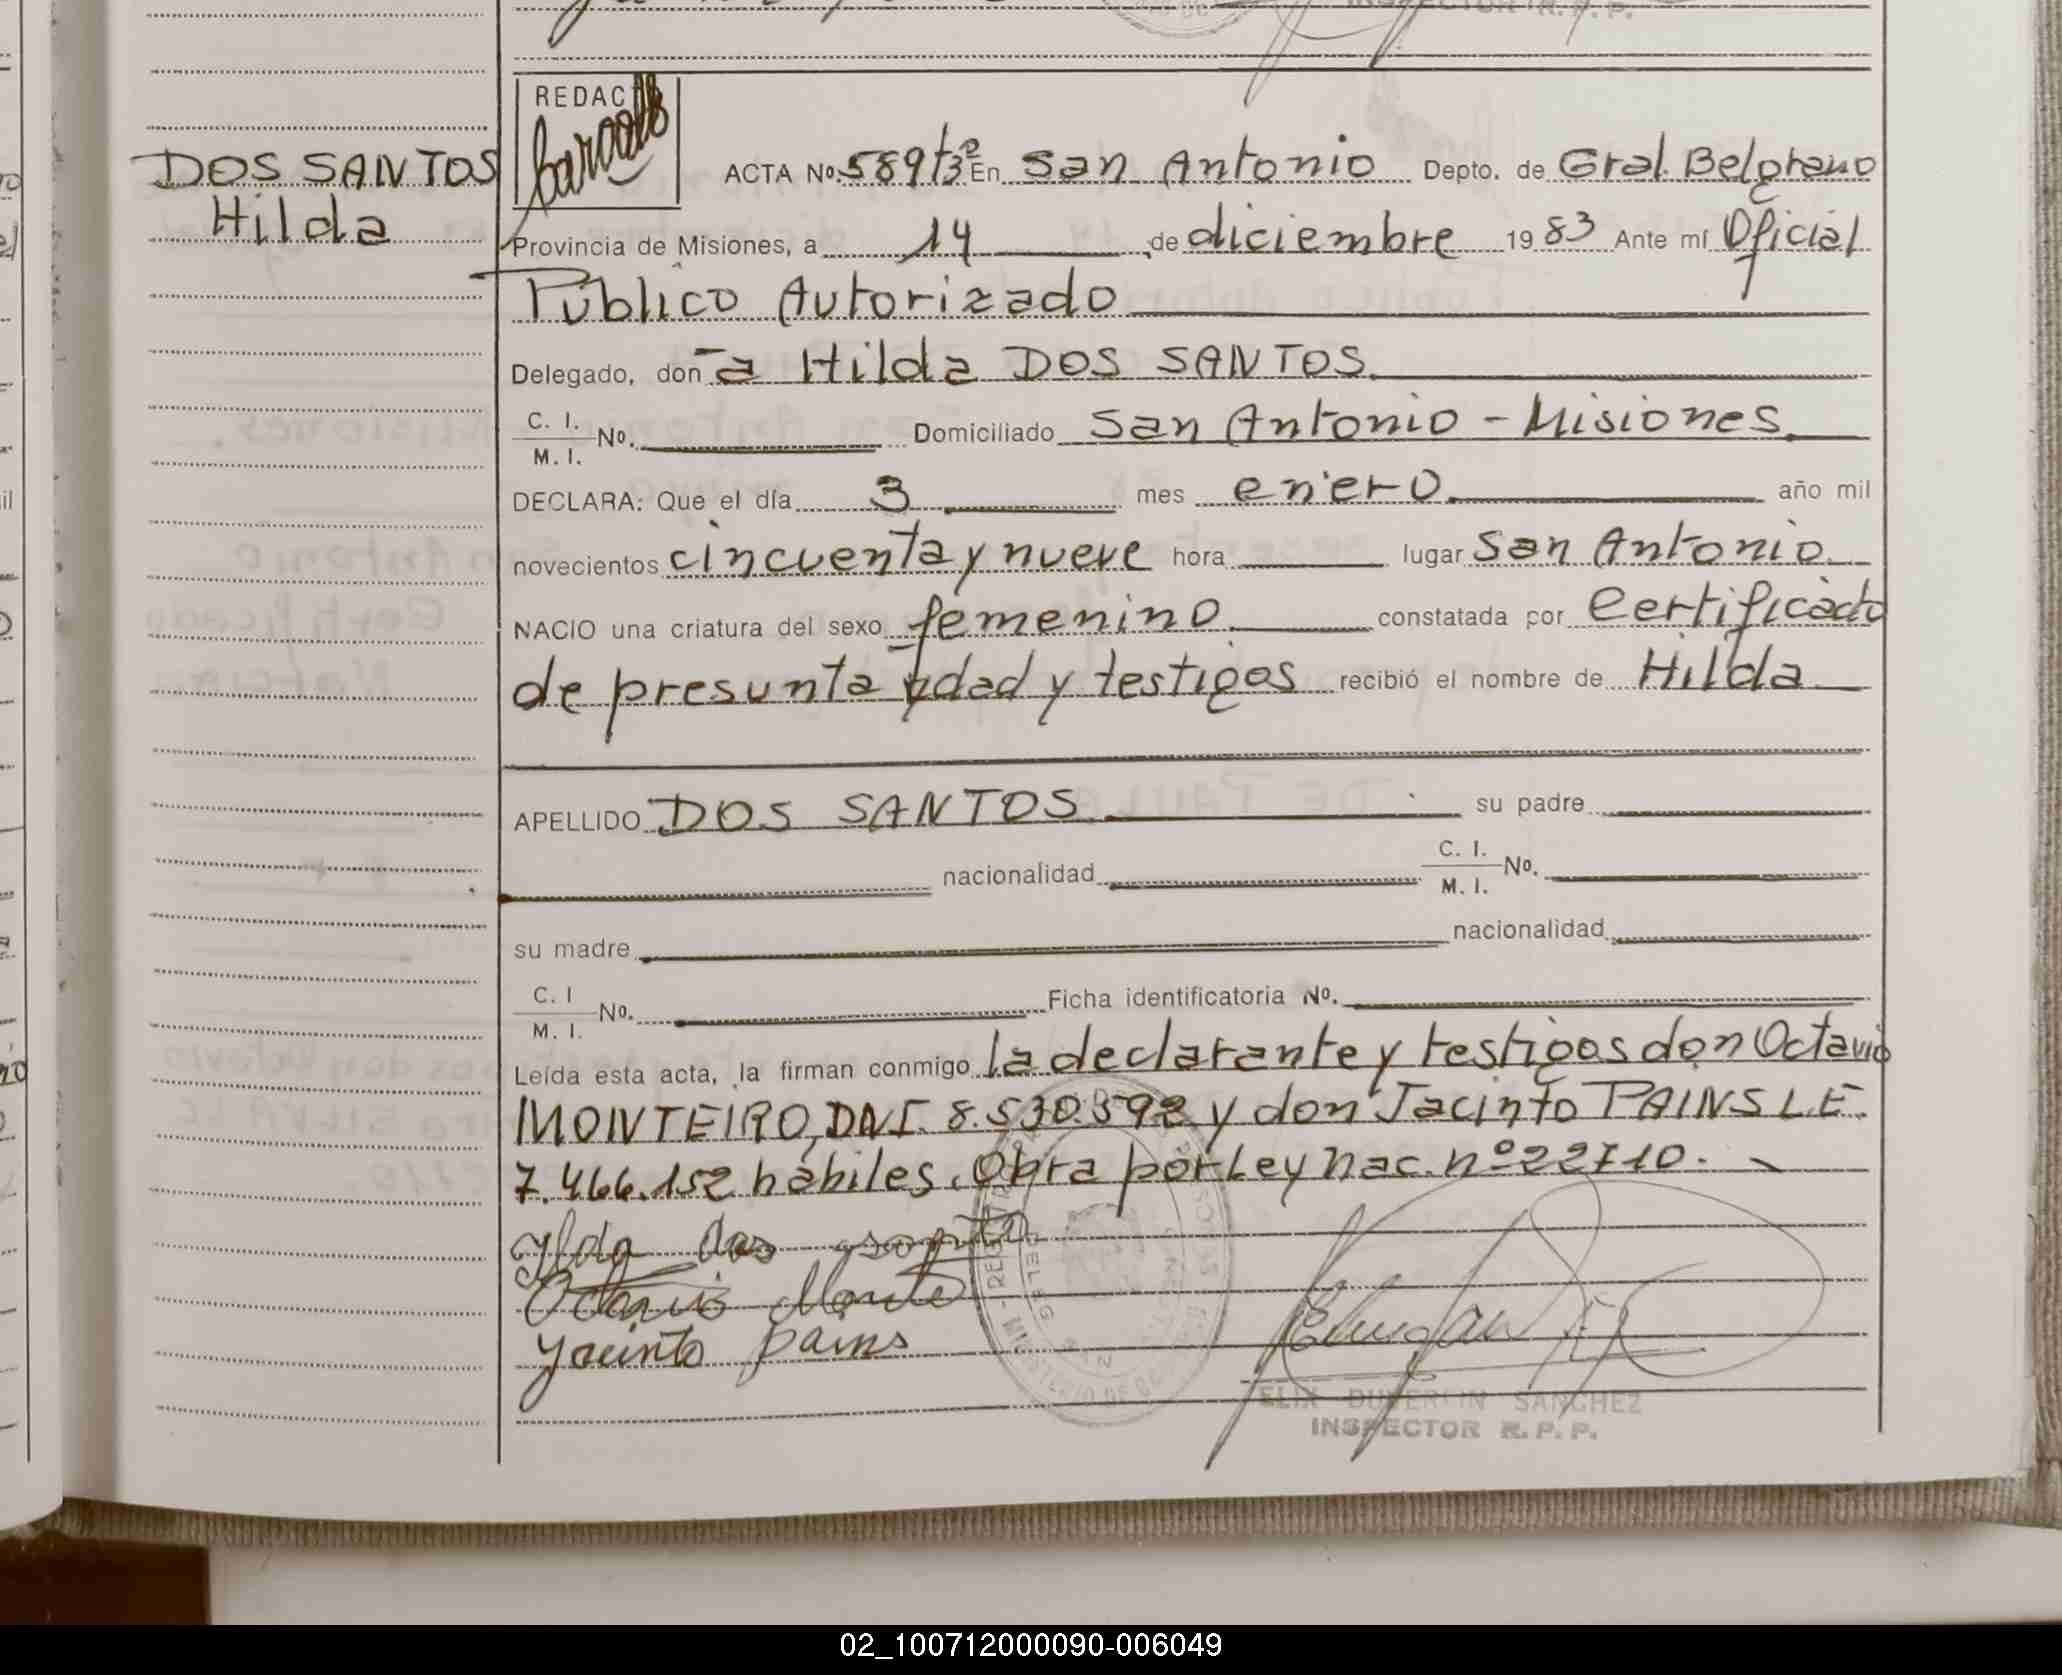 INSPECTOR R. P. P.
DOS SANTOS
Hilda
REDAC
ACTA No. 589 tº 3º En San Antonio Depto. de Gral. Belgrano
Provincia de Misiones, a 14 de diciembre 19 83 Ante mí Oficial
Público Autorizado
Delegado, doña Hilda DOS SANTOS
C. I.
M. I. No. Domiciliado San Antonio - Misiones
DECLARA: Que el día 3 mes enero año mil
novecientos cincuenta y nueve hora lugar San Antonio
NACIO una criatura del sexo femenino constatada por Certificado
de presunta edad y testigos recibió el nombre de Hilda
APELLIDO DOS SANTOS su padre
nacionalidad C. I. M. I. No.
su madre nacionalidad
C. I M. I. No. Ficha identificatoria No.
Leída esta acta, la firman conmigo la declarante y testigos don Octavio
MONTEIRO, DNI. 8.530.592 y don Jacinto PAINS L.E.
7.466.152 hábiles. Obra por Ley nac. nº 22710.
Ylda dos santos
Octavio Monte
Yacinto pains
FELIX DUBERLIN SANCHEZ
INSPECTOR R. P. P.
02_100712000090-006049